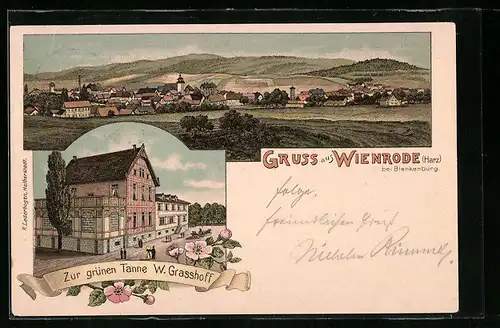 GRUSS aus WIENRODE (Harz)
bei Blankenburg.
folgt.
freundlichen Gruß
Wilhelm
Zur grünen Tanne W. Grasshoff
R. Lederbogen, Halberstadt.